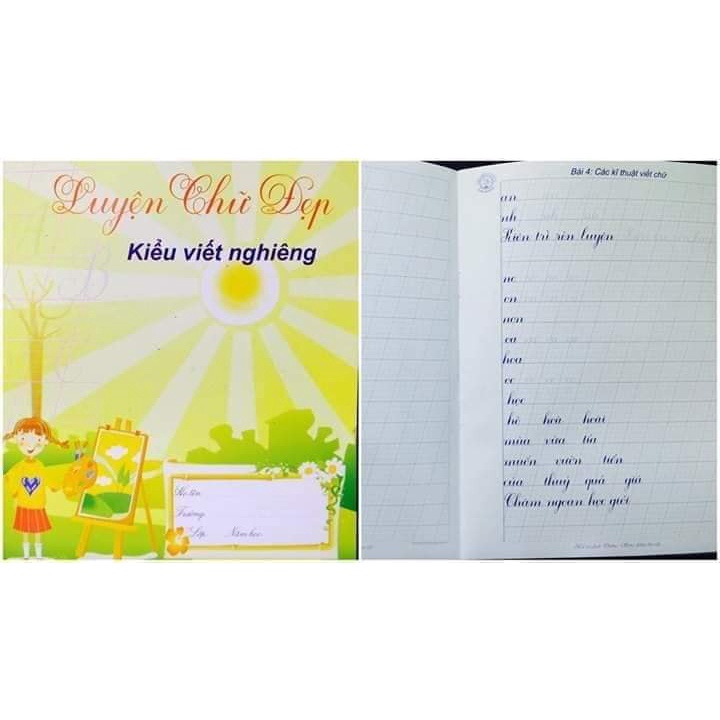 Luyện Chữ Đẹp
Kiểu viết nghiêng
Họ tên
Trường
Lớp Năm học
Bài 4: Các kĩ thuật viết chữ
an
nh
Kiên trì rèn luyện
nc
cn
ncn
ca
hoa
oc
học
hồ hoà hoài
mùa vừa tía
muốn vườn tiến
của thuỷ quà giú
Chăm ngoan học giỏi